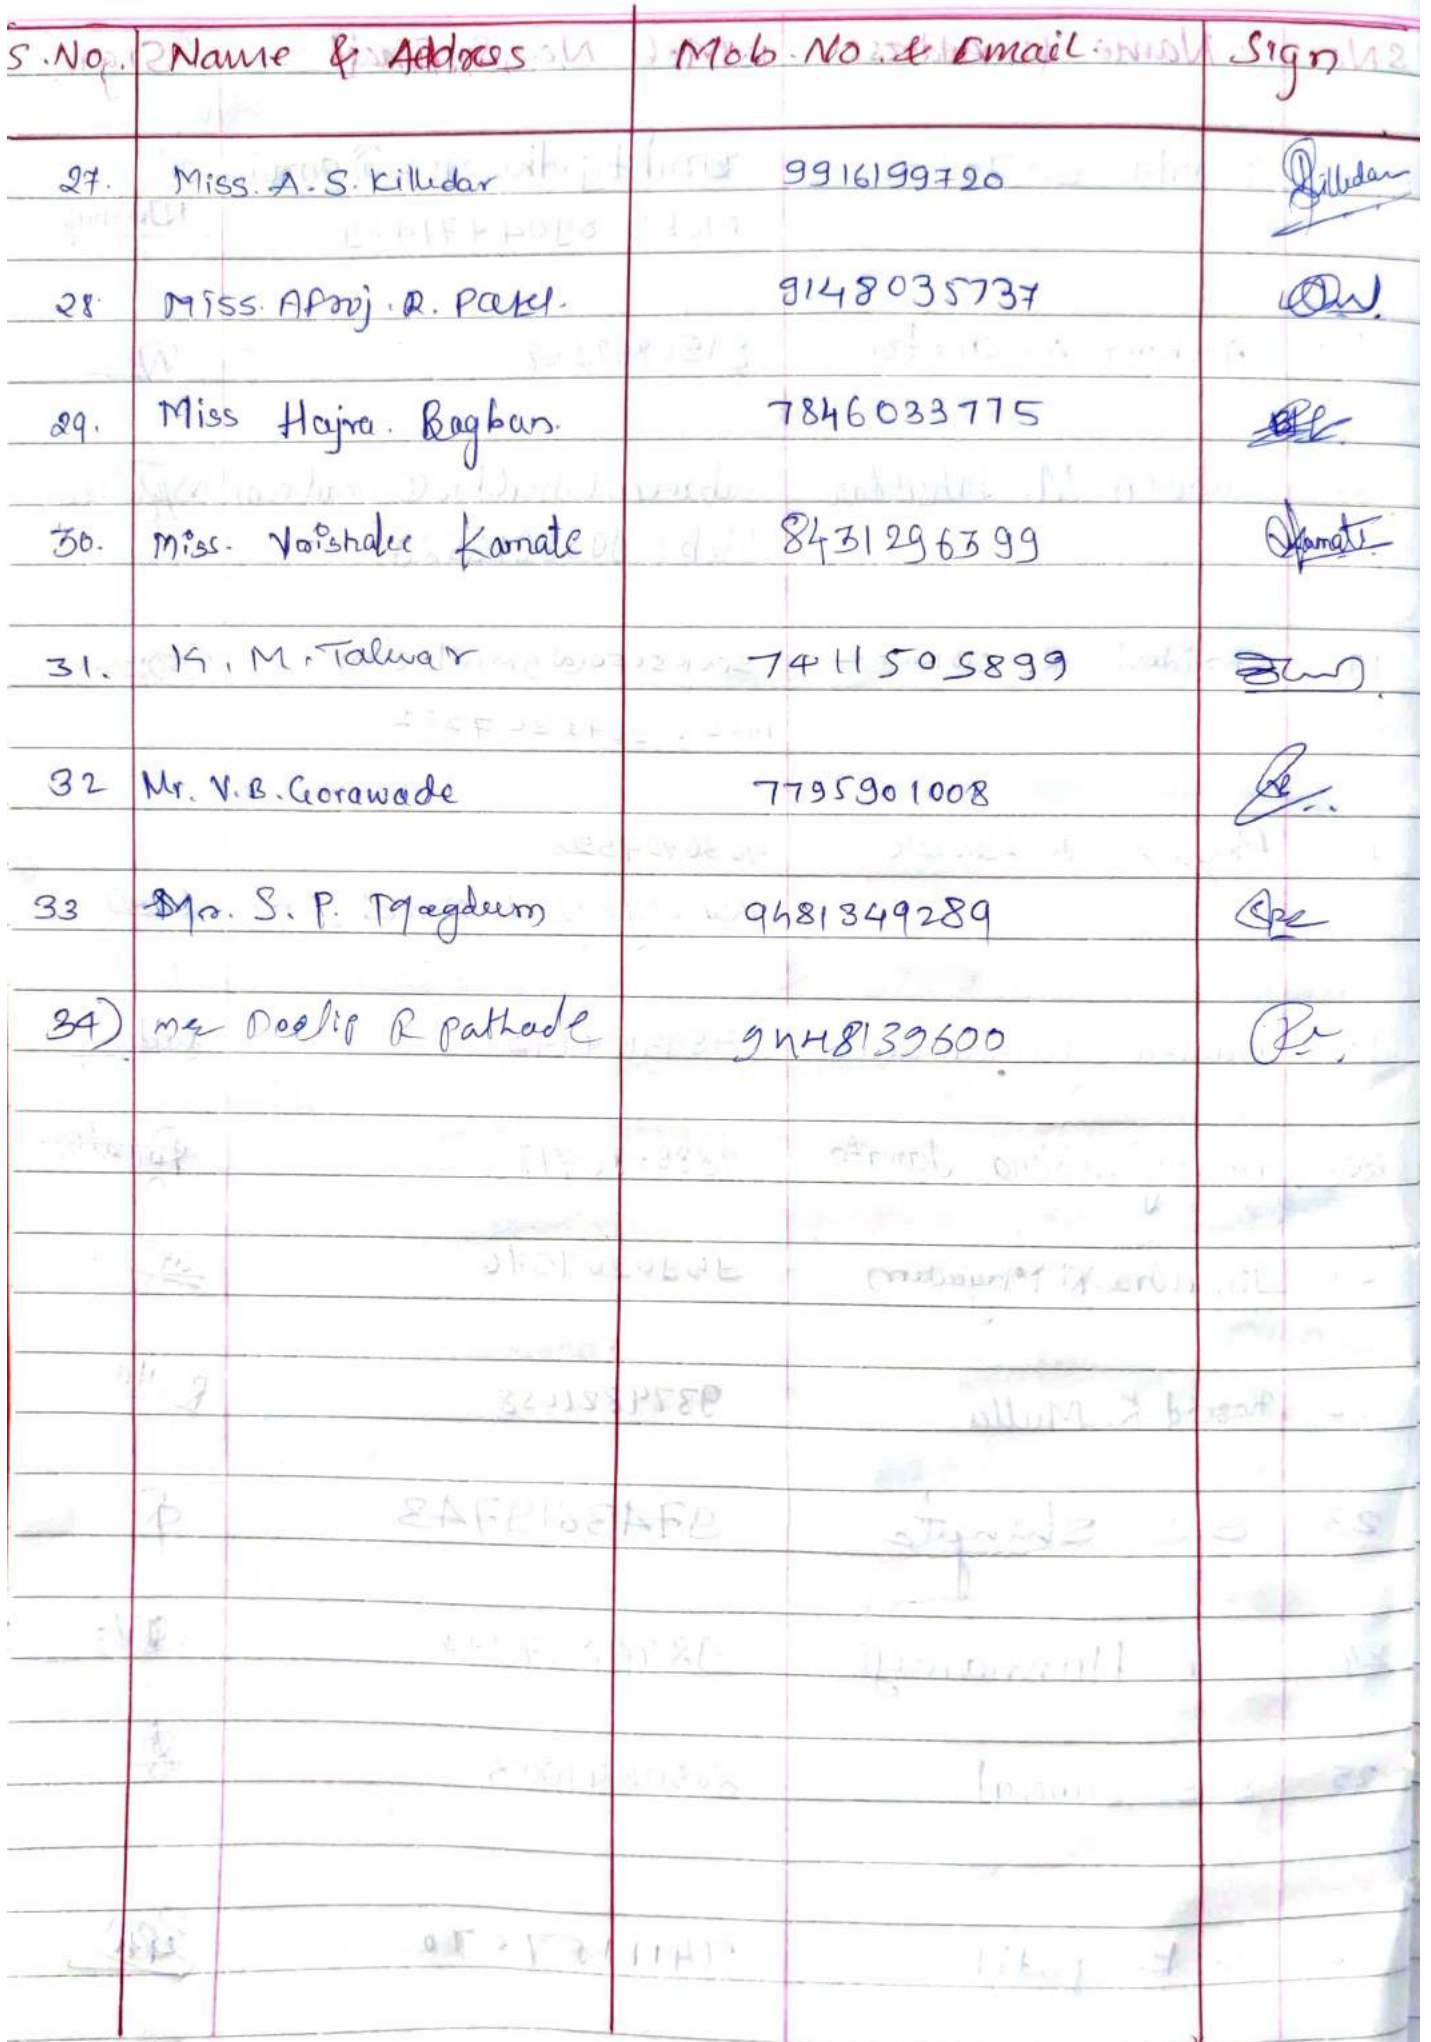 S.No. Name & Address Mob. No. & Email. Sign
27. Miss. A. S. Killedar 9916199720 Killedar
28. Miss. Afroj. R. Patel. 9148035737
29. Miss Hajra. Bagban. 7846033775
30. Miss. Vaishalee Kamate 8431296399 Kamate
31. K. M. Talwar 7411505899
32 Mr. V. B. Gorawade 7795901008
33 Mr. S. P. Magdum 9481349289
34) Mr R Pathade 9448139600